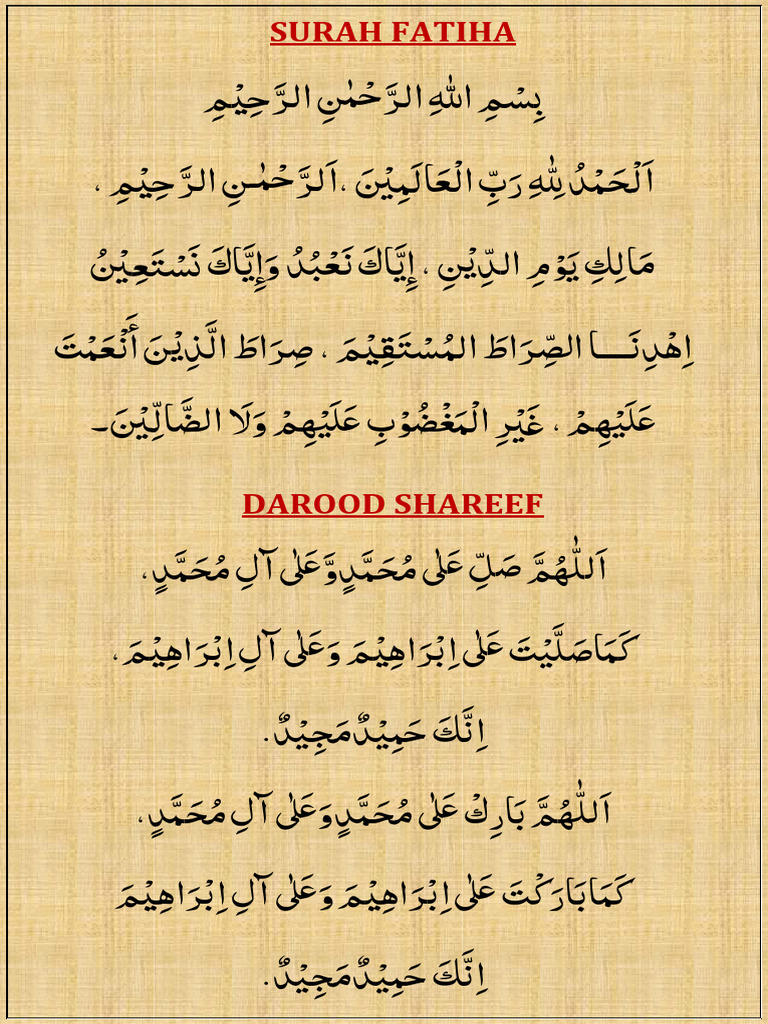 SURAH FATIHA
بِسْمِ اللهِ الرَّحْمٰنِ الرَّحِيْمِ
اَلْحَمْدُ لِلّٰهِ رَبِّ الْعَالَمِيْنَ ،اَلرَّحْمٰـنِ الرَّحِيْمِ ،
مَالِكِ يَوْمِ الدِّيْنِ ، إِيَّاكَ نَعْبُدُ وَإِيَّاكَ نَسْتَعِيْنُ
اِهْدِنَــــا الصِّرَاطَ المُسْتَقِيْمَ ، صِرَاطَ الَّذِيْنَ أَنْعَمْتَ
عَلَيْهِمْ ، غَيْرِ الْمَغْضُوْبِ عَلَيْهِمْ وَلَا الضَّالِّيْنَ۔
DAROOD SHAREEF
اَللّٰهُمَّ صَلِّ عَلٰى مُحَمَّدٍوَّعَلٰى آلِ مُحَمَّدٍ،
كَمَاصَلَّيْتَ عَلٰى اِبْرَاهِيْمَ وَعَلٰى آلِ اِبْرَاهِيْمَ،
اِنَّكَ حَمِيْدٌمَجِيْدٌ.
اَللّٰهُمَّ بَارِكْ عَلٰى مُحَمَّدٍوَعَلٰى آلِ مُحَمَّدٍ،
كَمَابَارَكْتَ عَلٰى اِبْرَاهِيْمَ وَعَلٰى آلِ اِبْرَاهِيْمَ
اِنَّكَ حَمِيْدٌمَجِيْدٌ.